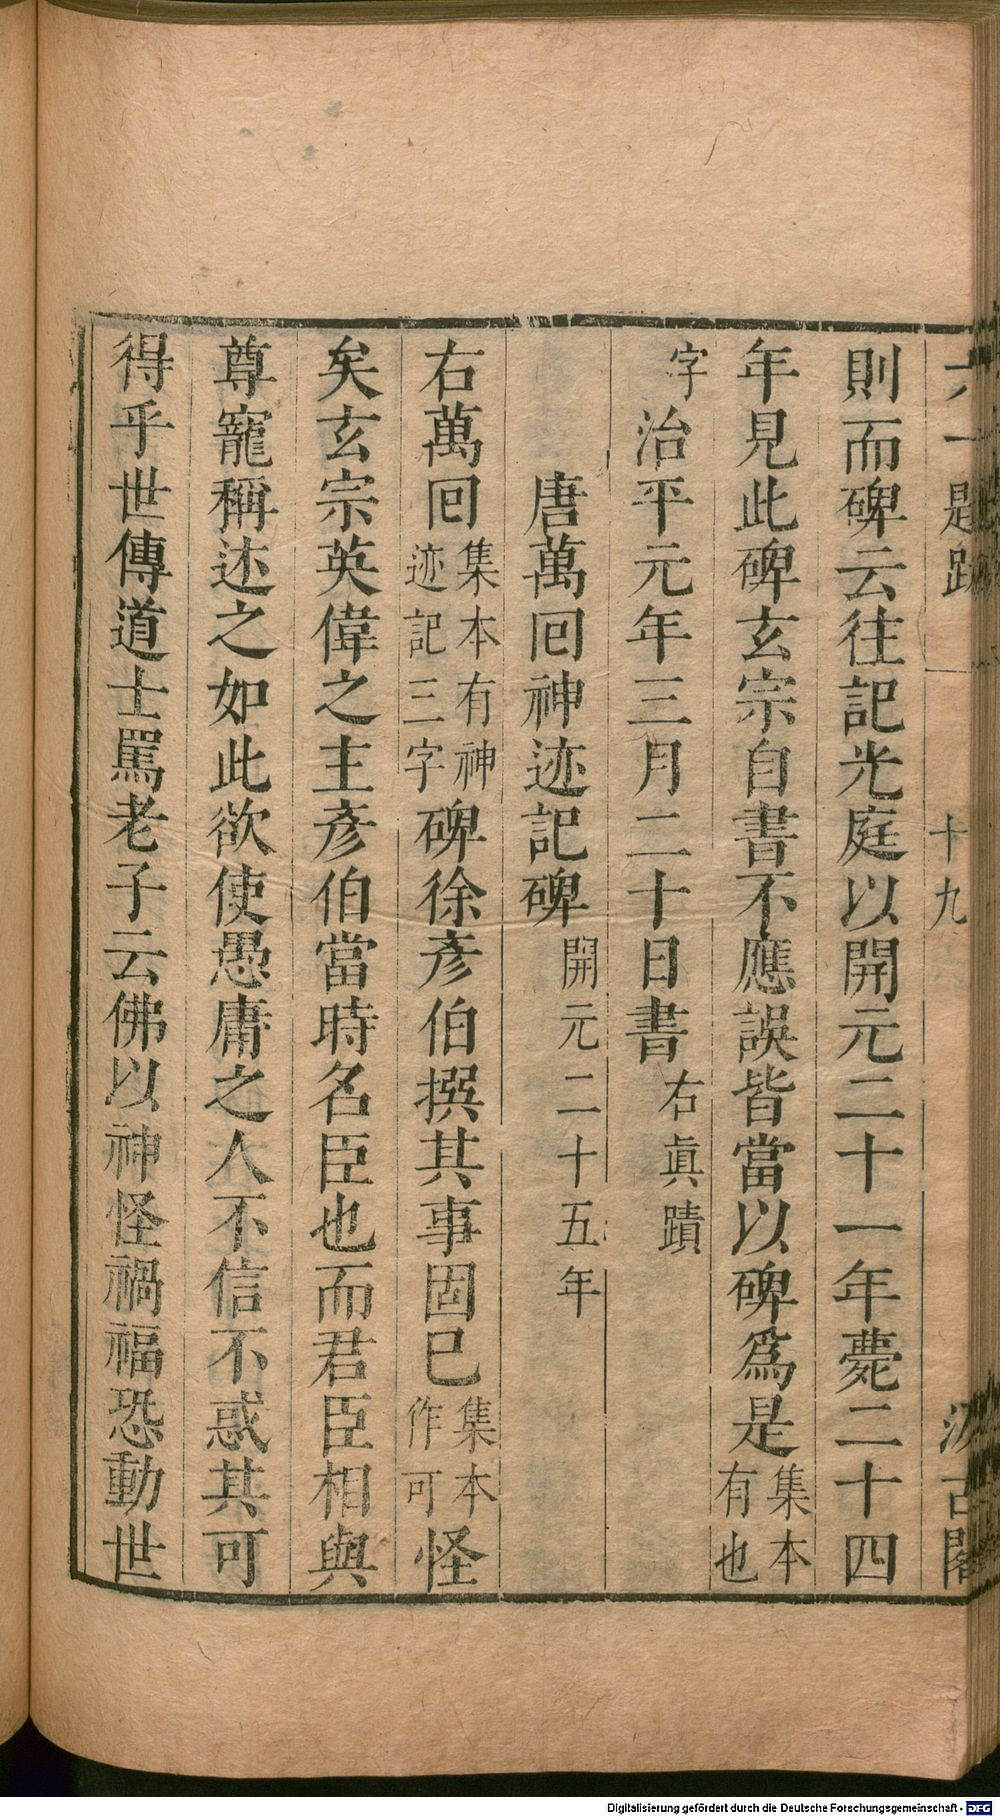 六一題跋 十九 汲古閣
則而碑云往記光庭以開元二十一年薨二十四
年見此碑玄宗自書不應誤皆當以碑爲是集本有也
字治平元年三月二十日書右眞蹟
唐萬回神迹記碑開元二十五年
右萬回集本有神迹記三字碑徐彥伯撰其事固已集本作可怪
矣玄宗英偉之主彥伯當時名臣也而君臣相與
尊寵稱述之如此欲使愚庸之人不信不惑其可
得乎世傳道士罵老子云佛以神怪禍福恐動世
Digitalisierung gefördert durch die Deutsche Forschungsgemeinschaft - DFG